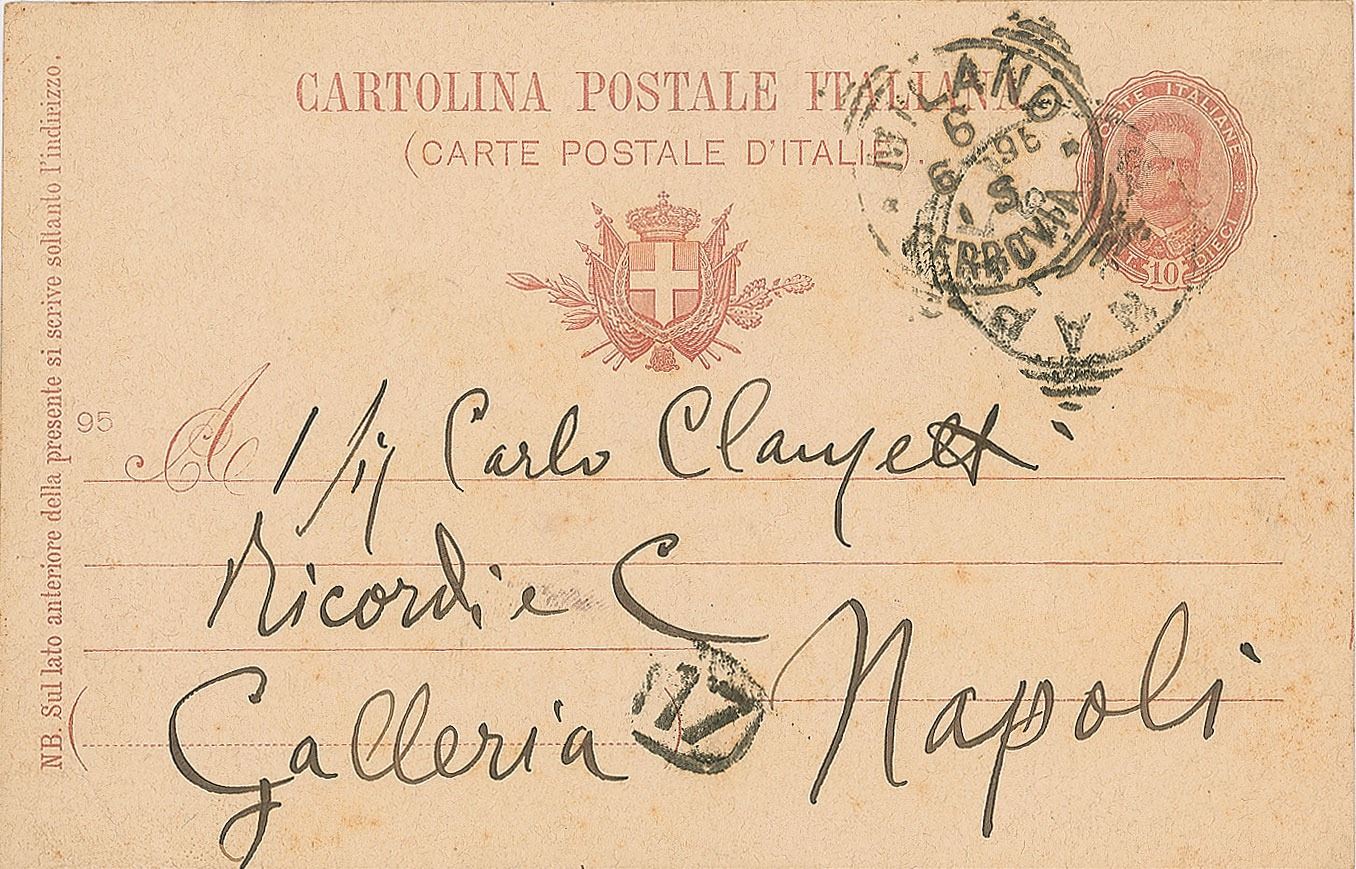 CARTOLINA POSTALE ITALIANA
(CARTE POSTALE D'ITALIE).
NB. Sul lato anteriore della presente si scrive soltanto l'indirizzo.
POSTE ITALIANE
CT. 10 DIECI
MILANO
6
6 - 96
5 S
FERROVIA
95
A
Carlo Clausetti
Ricordi e C
Galleria Napoli
117